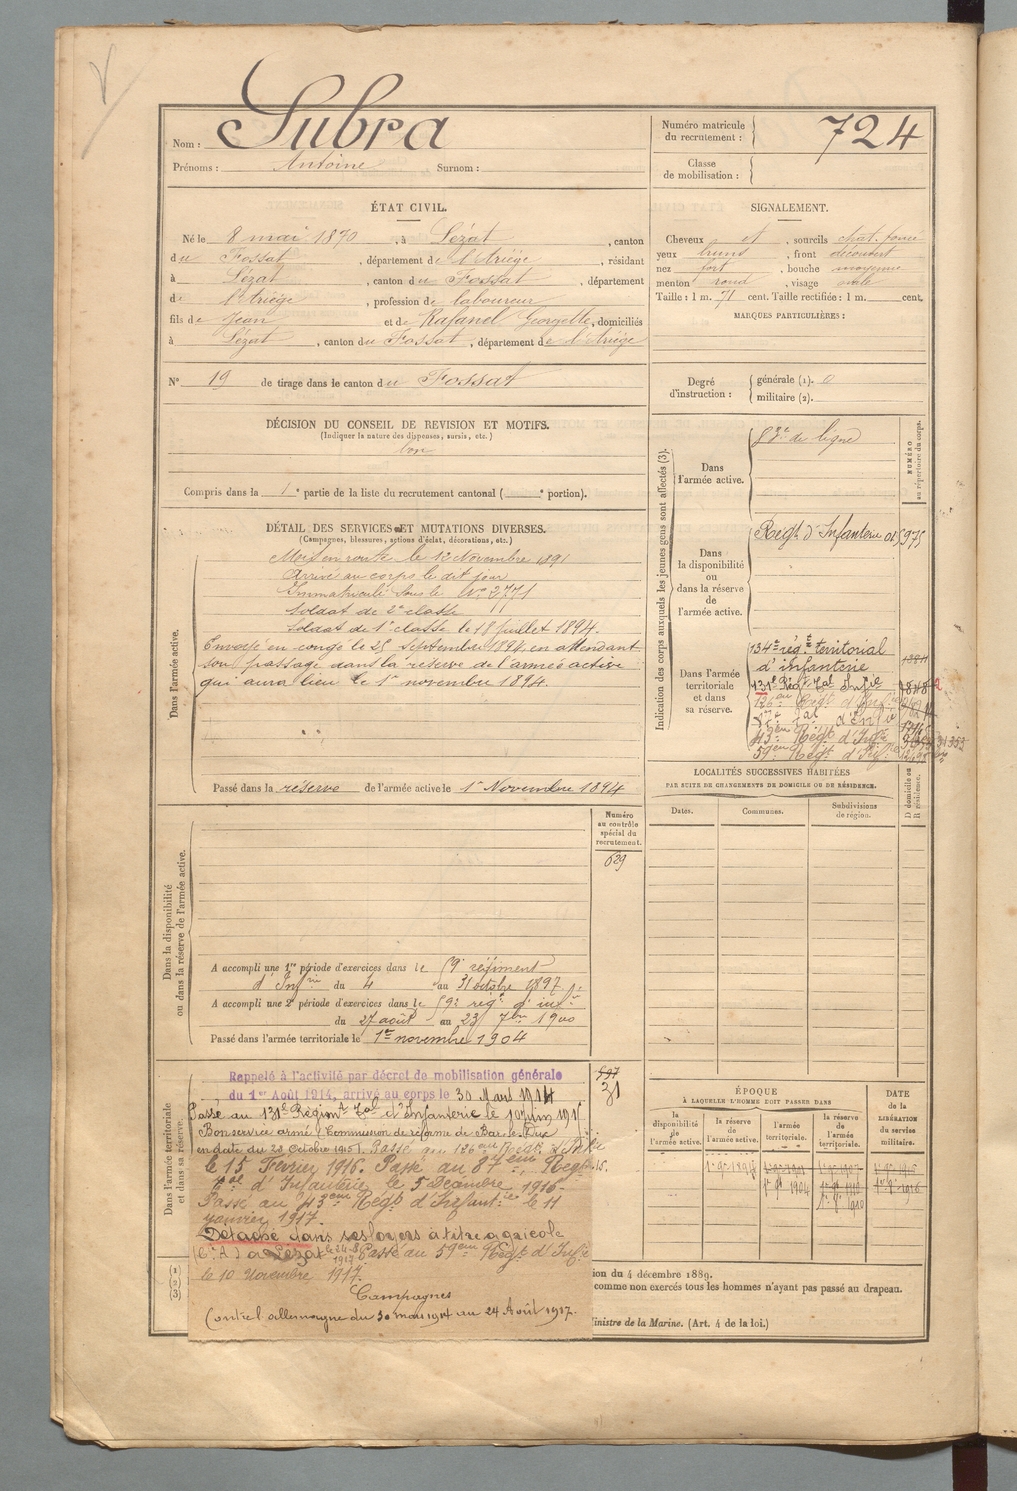 Nom : Subra
Prénoms : Antoine Surnom :
Numéro matricule du recrutement : 724
Classe de mobilisation :
ÉTAT CIVIL.
Né le 8 mai 1870, à Lézat, canton
du Fossat, département de l'Ariège, résidant
à Lézat, canton du Fossat, département
de l'Ariège, profession de laboureur
fils de Jean et de Rafanel Georgette, domiciliés
à Lézat, canton du Fossat, département de l'Ariège
N° 19 de tirage dans le canton du Fossat
SIGNALEMENT.
Cheveux et, sourcils chat. foncé
yeux bruns, front découvert
nez fort, bouche moyenne
menton rond, visage ovale
Taille : 1 m. 71 cent. Taille rectifiée : 1 m. cent.
MARQUES PARTICULIÈRES :
Degré d'instruction : générale (1). 0
militaire (2).
DÉCISION DU CONSEIL DE REVISION ET MOTIFS.
(Indiquer la nature des dispenses, sursis, etc.)
bon
Compris dans la 1e partie de la liste du recrutement cantonal ( e portion).
DÉTAIL DES SERVICES ET MUTATIONS DIVERSES.
(Campagnes, blessures, actions d'éclat, décorations, etc.)
Dans l'armée active.
Mis en route le 12 Novembre 1891
Arrivé au corps le dit jour
Immatriculé sous le N° 2771
Soldat de 2e classe
Soldat de 1e classe le 18 Juillet 1894.
Envoyé en congé le 25 Septembre 1894, en attendant
son passage dans la réserve de l'armée active
qui aura lieu le 1er novembre 1894.
Passé dans la réserve de l'armée active le 1er Novembre 1894
Indication des corps auxquels les jeunes gens sont affectés (3).
NUMÉRO au répertoire du corps.
Dans l'armée active.
de ligne
Dans la disponibilité ou dans la réserve de l'armée active.
Régt d'Infanterie 975
Dans l'armée territoriale et dans sa réserve.
134e rég.t territorial
d'infanterie
131e Régt Tal Infie
126eme Régt d'Infie
43eme Régt d'Infie
59eme Régt d'Infie
LOCALITÉS SUCCESSIVES HABITÉES
PAR SUITE DE CHANGEMENTS DE DOMICILE OU DE RÉSIDENCE.
Dates. Communes. Subdivisions de région. D domicile ou R résidence.
Dans la disponibilité ou dans la réserve de l'armée active.
Numéro au contrôle spécial du recrutement.
629
A accompli une 1re période d'exercices dans le 59e régiment
d'Infrie du 4 au 31 octobre 1897
A accompli une 2e période d'exercices dans le 59e régt d'infie
du 27 août au 23 7bre 1900
Passé dans l'armée territoriale le 1er novembre 1904
Dans l'armée territoriale et dans sa réserve.
597
31
Rappelé à l'activité par décret de mobilisation générale
du 1er Août 1914, arrivé au corps le 30 Mars 1914
Passé au 131e Régiment Tal d'Infanterie le 10 juin 1915
Bon service armé (Commission de réforme de Bar-le-Duc
en date du 20 Octobre 1915). Passé au 126eme Régt d'Infie
le 15 Février 1916. Passé au 87eme Régt
Tal d'Infanterie le 5 Décembre 1916.
Passé au 43eme Régt d'Infanterie le 11
janvier 1917.
Détaché dans ses foyers à titre agricole
à Lézat le 24-8 1917 Passé au 59eme Régt d'Infie
le 10 Novembre 1917.
Campagnes
Contre l'allemagne du 30 mars 1914 au 24 Août 1917.
ÉPOQUE
À LAQUELLE L'HOMME DOIT PASSER DANS
la disponibilité de l'armée active.
la réserve de l'armée active.
l'armée territoriale.
la réserve de l'armée territoriale.
DATE de la LIBÉRATION du service militaire.
1er 9bre 1894
1er 9bre 1904
1er 9bre 1910
1er 9bre 1916
(1)
(2)
(3)
ion du 4 décembre 1889.
comme non exercés tous les hommes n'ayant pas passé au drapeau.
Ministre de la Marine. (Art. 4 de la loi.)